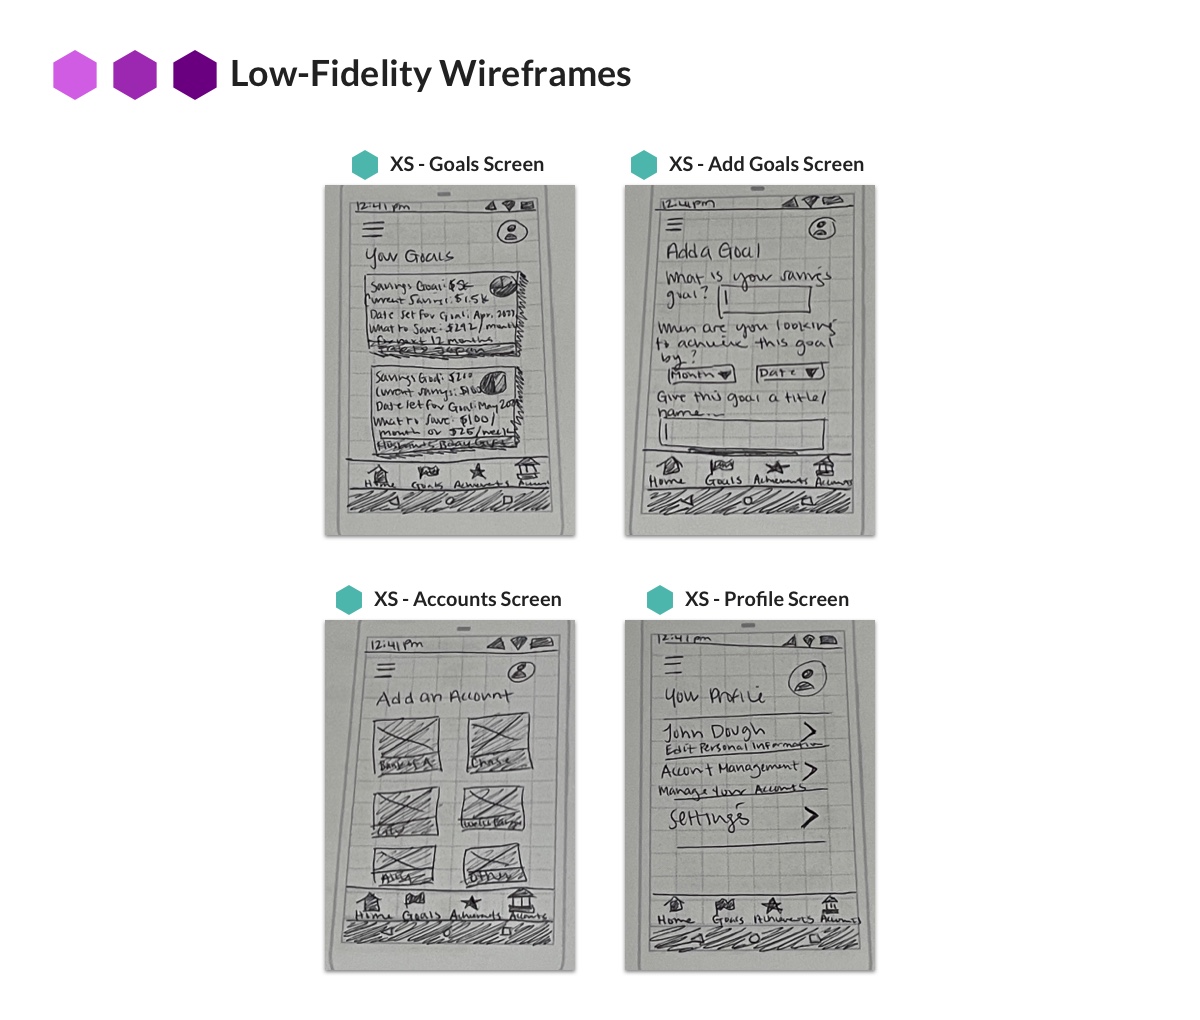 Low-Fidelity Wireframes
XS - Goals Screen
12:41 pm
Your Goals
Savings Goal: $5k
Current Savings: $1.5k
Date Set For Goal: Apr.
What to Save: $292/month
For next 12 months
Savings Goal: $200
Current Savings: $100
Date Set for Goal: May
What to Save: $100/
month or $25/week
Husband's Bday Gift
Home Goals Achievements Account
XS - Add Goals Screen
12:41 pm
Add a Goal
What is your savings
goal?
When are you looking
to achieve this goal
by?
Month Date
Give this goal a title/
name...
Home Goals Achievements Accounts
XS - Accounts Screen
12:41 pm
Add an Account
Bank of A Chase
City Wells Fargo
Ally Other
Home Goals Achievements Accounts
XS - Profile Screen
12:41 pm
Your Profile
John Dough
Edit Personal Information
Account Management
Manage Your Accounts
Settings
Home Goals Achievements Accounts